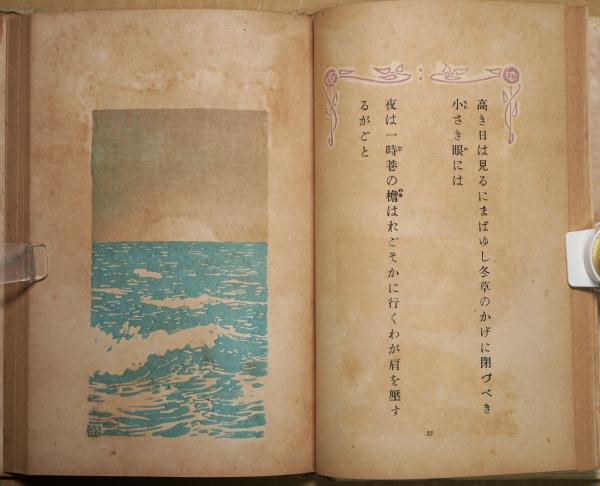 高き日は見るにまばゆし冬草のかげに閉づべき
小さき眼には
夜は一時巷の檐はれごそかに行くわが肩を壓す
るがごと